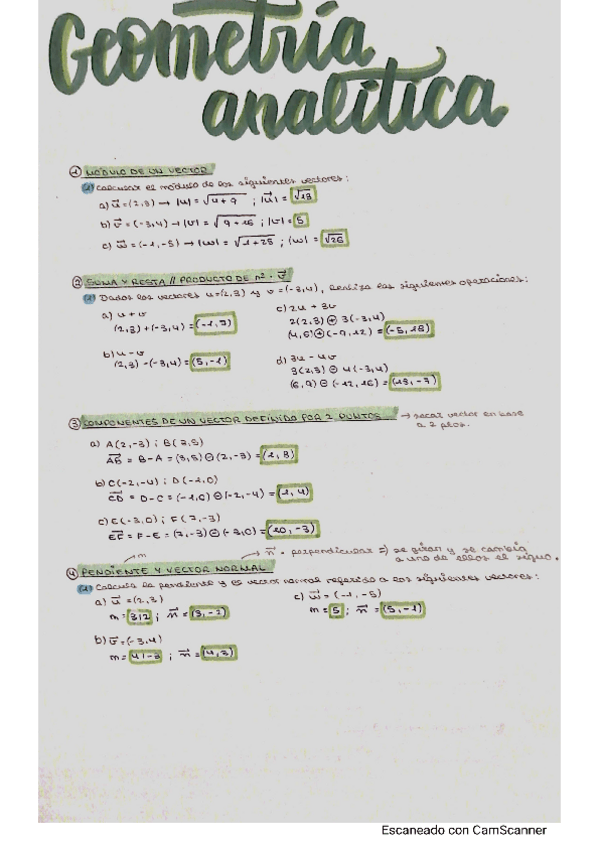 Geometría
analítica
① MÓDULO DE UN VECTOR
(1) Calcular el módulo de los siguientes vectores:
a) u⃗ = (2,3) → |u| = √4+9 ; |u⃗| = √13
b) v⃗ = (-3,4) → |v| = √9+16 ; |v| = 5
c) w⃗ = (-1,-5) → |w| = √1+25 ; |w| = √26
② SUMA Y RESTA // PRODUCTO DE nº · v⃗
(1) Dados los vectores u=(2,3) y v=(-3,4), realiza las siguientes operaciones:
a) u + v
(2,3)+(-3,4) = (-1,7)
b) u - v
(2,3) - (-3,4) = (5,-1)
c) 2u + 3v
2(2,3) ⊕ 3(-3,4)
(4,6) ⊕ (-9,12) = (-5,18)
d) 3u - 4v
3(2,3) ⊖ 4(-3,4)
(6,9) ⊖ (-12,16) = (18,-7)
③ COMPONENTES DE UN VECTOR DEFINIDO POR 2 PUNTOS → sacar vector en base
a 2 ptos.
a) A(2,-3) ; B(3,5)
AB⃗ = B-A = (3,5) ⊖ (2,-3) = (1,8)
b) C(-2,-4) ; D(-1,0)
CD⃗ = D-C = (-1,0) ⊖ (-2,-4) = (1,4)
c) E(-3,0) ; F(7,-3)
EF⃗ = F-E = (7,-3) ⊖ (-3,0) = (10,-3)
m
n⃗ = perpendicular => se giran y se cambia
a uno de ellos el signo.
④ PENDIENTE Y VECTOR NORMAL
(1) Calcula la pendiente y el vector normal referido a los siguientes vectores:
a) u⃗ = (2,3)
m = 3/2 ; n⃗ = (3,-2)
b) v⃗ = (-3,4)
m = 4/-3 ; n⃗ = (4,3)
c) w⃗ = (-1,-5)
m = 5 ; n⃗ = (5,-1)
Escaneado con CamScanner